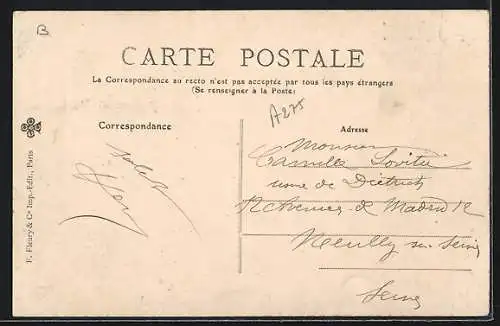 B
CARTE POSTALE
La Correspondance au recto n'est pas acceptée par tous les pays étrangers
(Se renseigner à la Poste)
A275
Correspondance
Adresse
F. Fleury & Cie Imp.-Edit., Paris
Monsieur
Camille
usine de Dietrich
12 Avenue de Madrid 12
Neuilly sur Seine
Seine